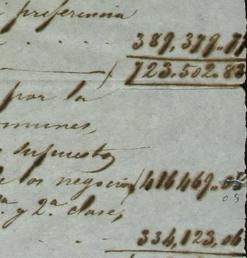 preferencia
389,379.77
723,502.83
por la
munes,
supuesto
de los negocios 416,469.
y 2ª clase,
334,123.06